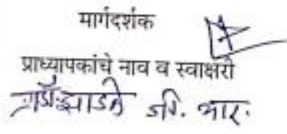 मार्गदर्शक
प्राध्यापकांचे नाव व स्वाक्षरी
जी. आर.